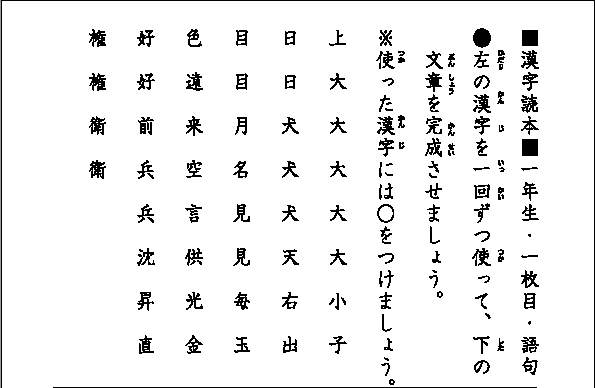 ■漢字読本■一年生・一枚目・語句
●左の漢字を一回ずつ使って、下の
文章を完成させましょう。
※使った漢字には○をつけましょう。
上大大大大大小子
日日犬犬犬天右出
目目月名見見毎玉
色遠来空言供光金
好好前兵兵沈昇直
権権衛衛